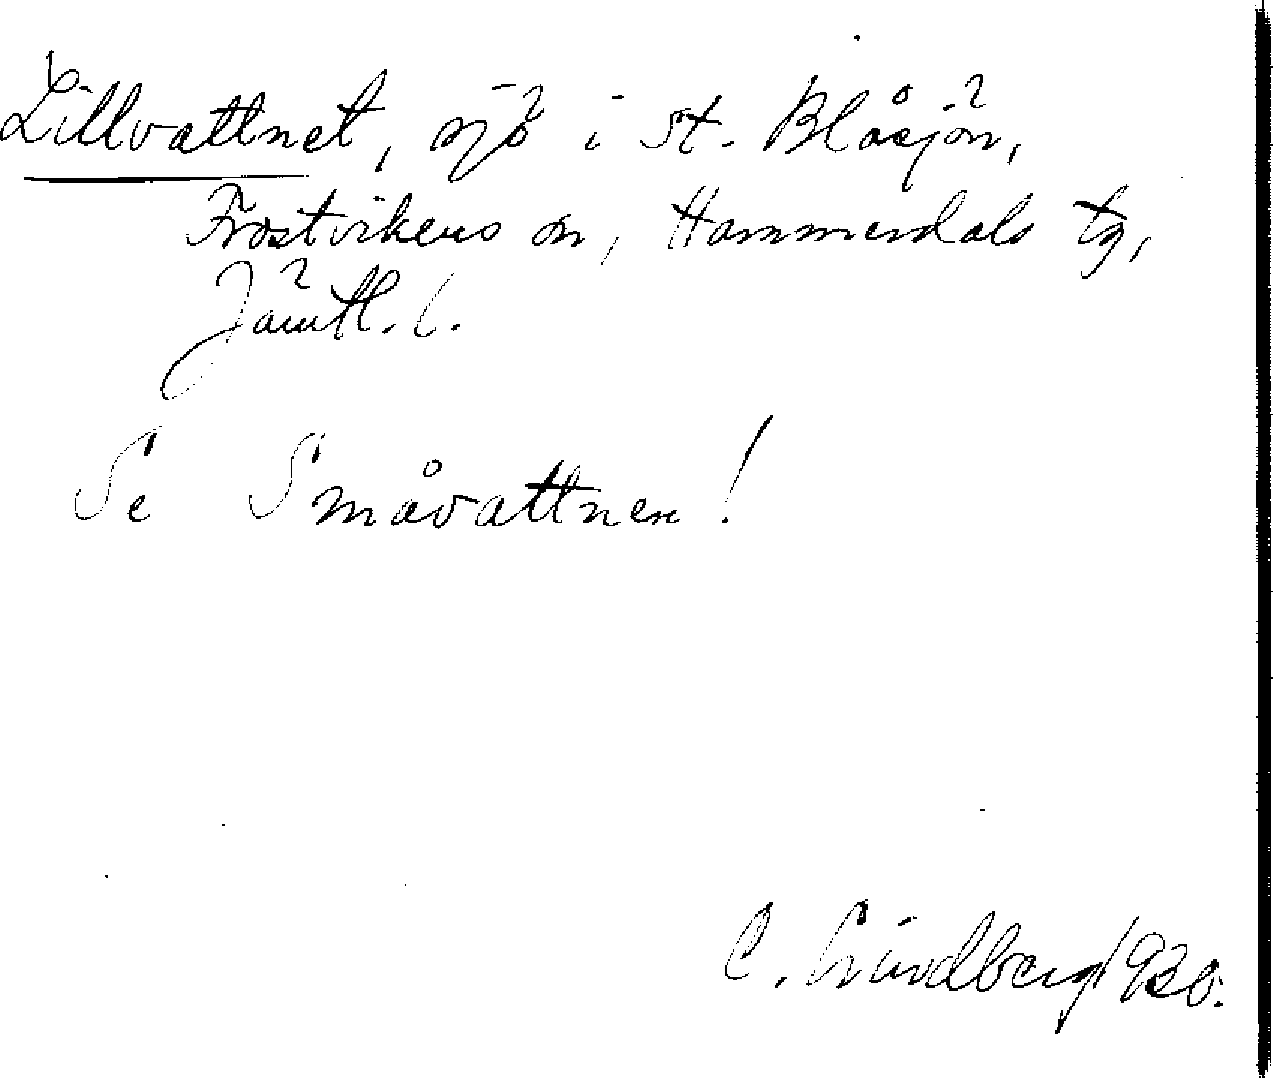 Lillvattnet, sjö i St. Blåsjön,
Frostvikens sn, Hammerdals tg,
Jämtl. l.
Se Småvattnen!
C. Lindberg 1930.